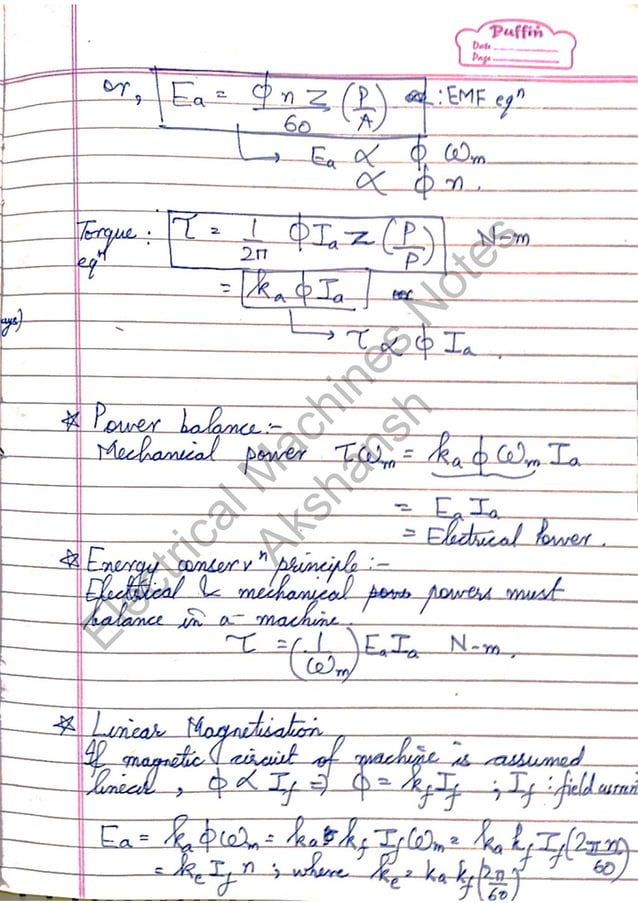 Puffin
Date
Page
or, Ea = φnZ/60 (P/A) : EMF eqⁿ
→ Ea ∝ φ ωm
∝ φ n.
Torque eqⁿ : τ = 1/2π φ Ia Z (P/P) N-m
= ka φ Ia
ays)
→ τ ∝ φ Ia.
☆ Power balance:-
Mechanical power τωm = ka φ ωm Ia
= Ea Ia
= Electrical Power.
☆ Energy conservⁿ principle:-
Electrical & mechanical powers must
balance in a machine.
τ = (1/ωm) Ea Ia N-m.
☆ Linear Magnetisation
If magnetic circuit of machine is assumed
linear, φ ∝ If ⇒ φ = kf If ; If : field current
Ea = ka φ ωm = ka kf If ωm = ka kf If (2πn/60)
= ke If n ; where ke = ka kf (2π/60)
Electrical Machines Notes
Akshansh